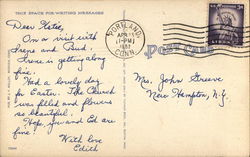 THIS SPACE FOR WRITING MESSAGES
POST CARD
PORTLAND, CONN.
APR 13
PM
Dear Katie,
On a visit with
Irene and Bud.
Irene is getting along
fine.
Had a lovely day
for Easter. The Church
was filled and flowers
so beautiful.
Hope you and Ed are
fine.
With love
Edith
Mrs. John Greeve
New Hampton, N.Y.